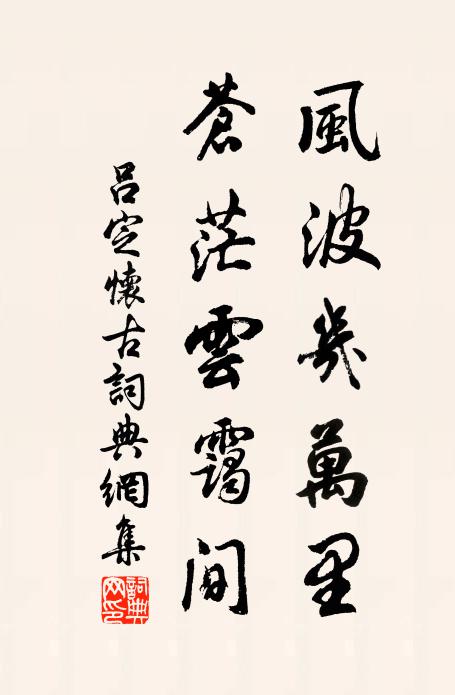 風波幾萬里
蒼茫雲靄間
呂定懷古詞典網集
詞典网印